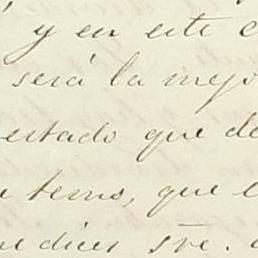 y en este c
será la mejo
estado que de
temo, que e
dices sre.